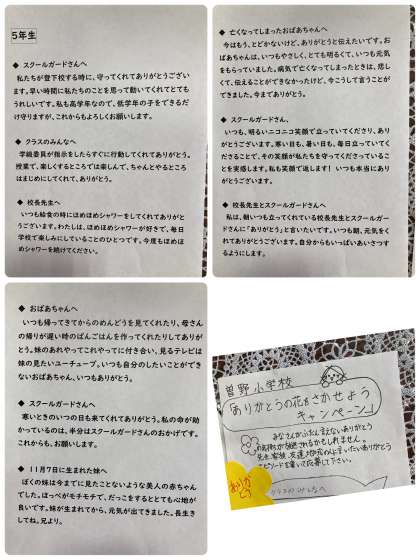 5年生
◆ スクールガードさんへ
私たちが登下校する時に、守ってくれてありがとうござい
ます。早い時間に私たちのことを思って動いてくれてとても
うれしいです。私も高学年なので、低学年の子をできるだ
け守りますが、これからもよろしくお願いします。
◆ クラスのみんなへ
学級委員が指示をしたらすぐに行動してくれてありがとう。
授業で、楽しくするところでは楽しんで、ちゃんとやるところ
はまじめにしてくれて、ありがとう。
◆ 校長先生へ
いつも給食の時にほめほめシャワーをしてくれてありがと
うございます。わたしは、ほめほめシャワーが好きで、毎日
学校で楽しみにしていることのひとつです。今度もほめほめ
シャワーを続けてください。
◆ 亡くなってしまったおばあちゃんへ
今はもう、とどかないけど、ありがとうと伝えたいです。お
ばあちゃんは、いつもやさしく、とても明るくて、いつも元気
をもらっていました。病気で亡くなってしまったときは、悲し
くて、伝えることができなかったけど、今こうして言うことが
できました。今までありがとう。
◆ スクールガードさん、
いつも、明るいニコニコ笑顔で立っていてくださり、あり
がとうございます。寒い日も、暑い日も、毎日立っていてく
ださることで、その笑顔が私たちを守ってくださっていること
を実感します。私も笑顔で返します！ いつも本当にあり
がとうございます。
◆ 校長先生とスクールガードさんへ
私は、朝いつも立ってくれている校長先生とスクールガー
ドさんに「ありがとう」と言いたいです。いつも朝、元気をく
れてありがとうございます。自分からもいっぱいあいさつする
ようにします。
◆ おばあちゃんへ
いつも帰ってきてからのめんどうを見てくれたり、母さん
の帰りが遅い時のばんごはんを作ってくれたりしてありが
とう。妹のあれやってこれやってに付き合い、見るテレビは
妹の見たいユーチューブ。いつも自分のしたいことができ
ないおばあちゃん、いつもありがとう。
◆ スクールガードさんへ
寒いときのいつの日も来てくれてありがとう。私の命が助
かっているのは、半分はスクールガードさんのおかげです。
これからも、お願いします。
◆ 11月7日に生まれた妹へ
ぼくの妹は今までに見たことないような美人の赤ちゃん
でした。ほっぺがモチモチで、だっこをするととても心地が
良いです。妹が生まれてから、元気が出てきました。長生き
してね。兄より。
曽野小学校
「ありがとうの花をさかせよう
キャンペーン」
みなさんがふだん言えないありがとう
の気持ちが放送されるかもしれません。
先生、家族、友達、地域の人に言いたいありがとう
エピソードを書いて応募して下さい。
ありがとう
クラスのみんなへ